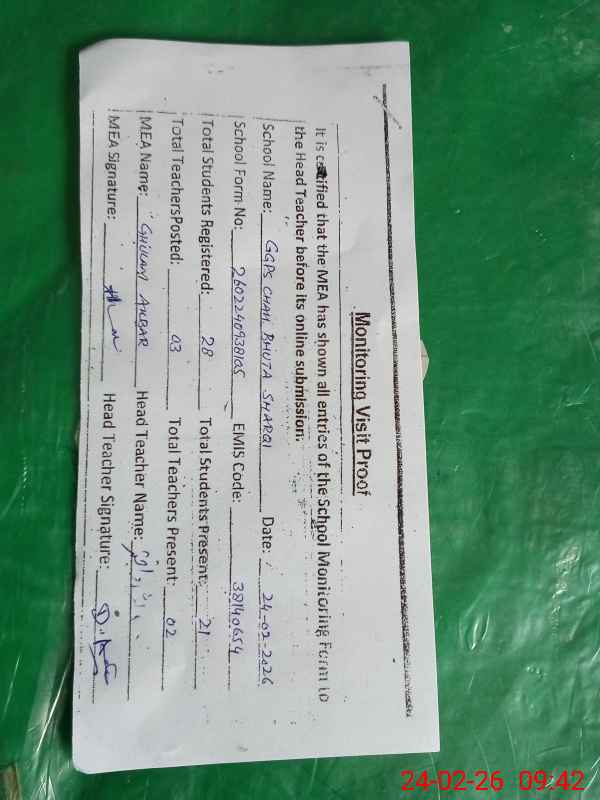 Monitoring Visit Proof
It is certified that the MEA has shown all entries of the School Monitoring Form to
the Head Teacher before its online submission.
School Name: GGPS CHAH BHUTA SHARQI Date: 24-02-2026
School Form No: 26022409381105 EMIS Code: 38140654
Total Students Registered: 28 Total Students Present: 21
Total Teachers Posted: 03 Total Teachers Present: 02
MEA Name: GHULAM AKBAR Head Teacher Name:
MEA Signature: Head Teacher Signature:
24-02-26 09:42